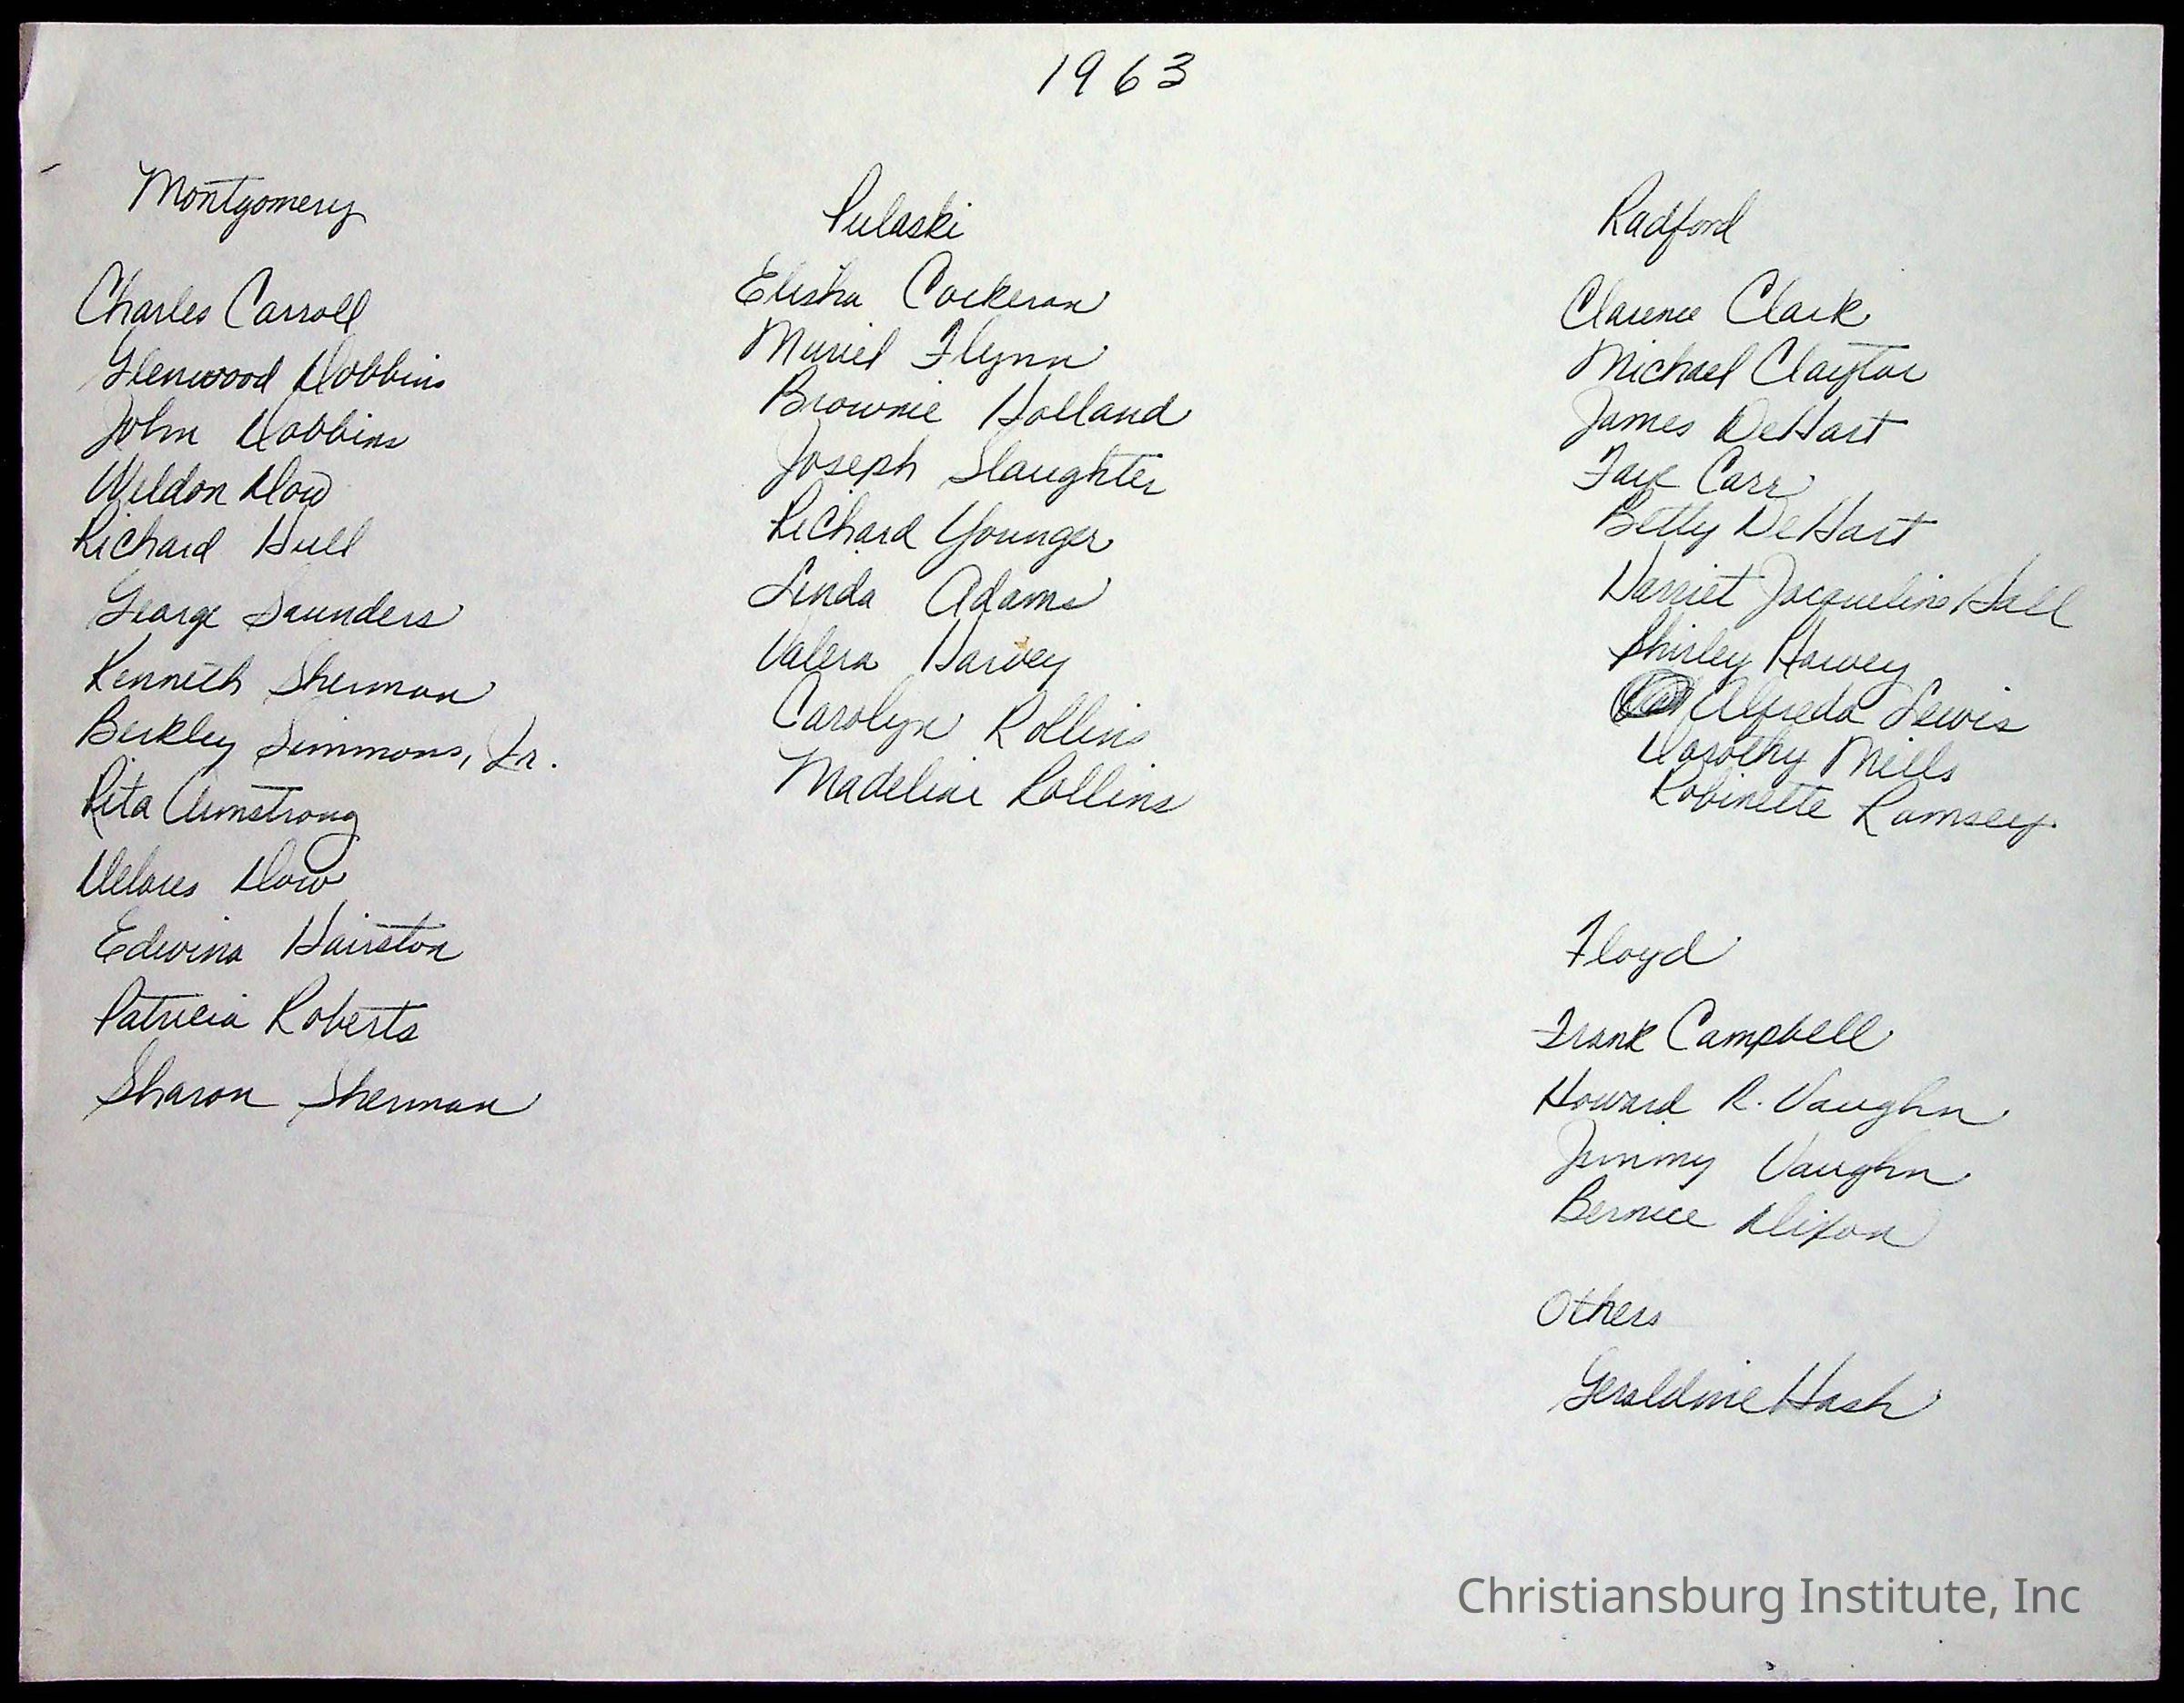 1963
Montgomery
Charles Carroll
Glenwood Dobbins
John Dobbins
Weldon Dow
Richard Hull
George Saunders
Kenneth Sherman
Berkley Simmons, Jr.
Rita Armstrong
Delores Dow
Edwina Hairston
Patricia Roberts
Sharon Sherman
Pulaski
Elisha Cockeran
Muriel Flynn
Brownie Holland
Joseph Slaughter
Richard Younger
Linda Adams
Valera Harvey
Carolyn Rollins
Madeline Rollins
Radford
Clarence Clark
Michael Claytor
James DeHart
Faye Carr
Betty DeHart
Harriet Jacqueline Hall
Shirley Harvey
Alfreda Lewis
Dorothy Mills
Robinette Ramsey
Floyd
Frank Campbell
Howard R. Vaughn
Jimmy Vaughn
Bernice Dixon
Others
Geraldine Hash
Christiansburg Institute, Inc